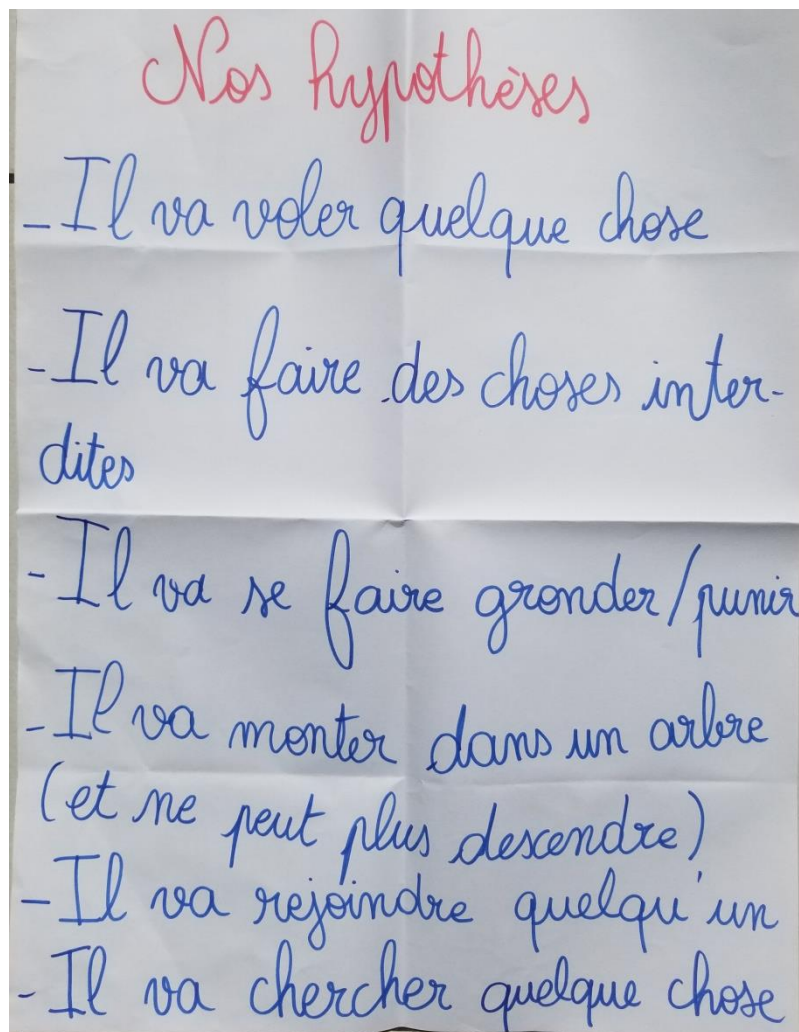 Nos hypothèses
- Il va voler quelque chose
- Il va faire des choses inter-
dites
- Il va se faire gronder/punir
- Il va monter dans un arbre
(et ne peut plus descendre)
- Il va rejoindre quelqu'un
- Il va chercher quelque chose